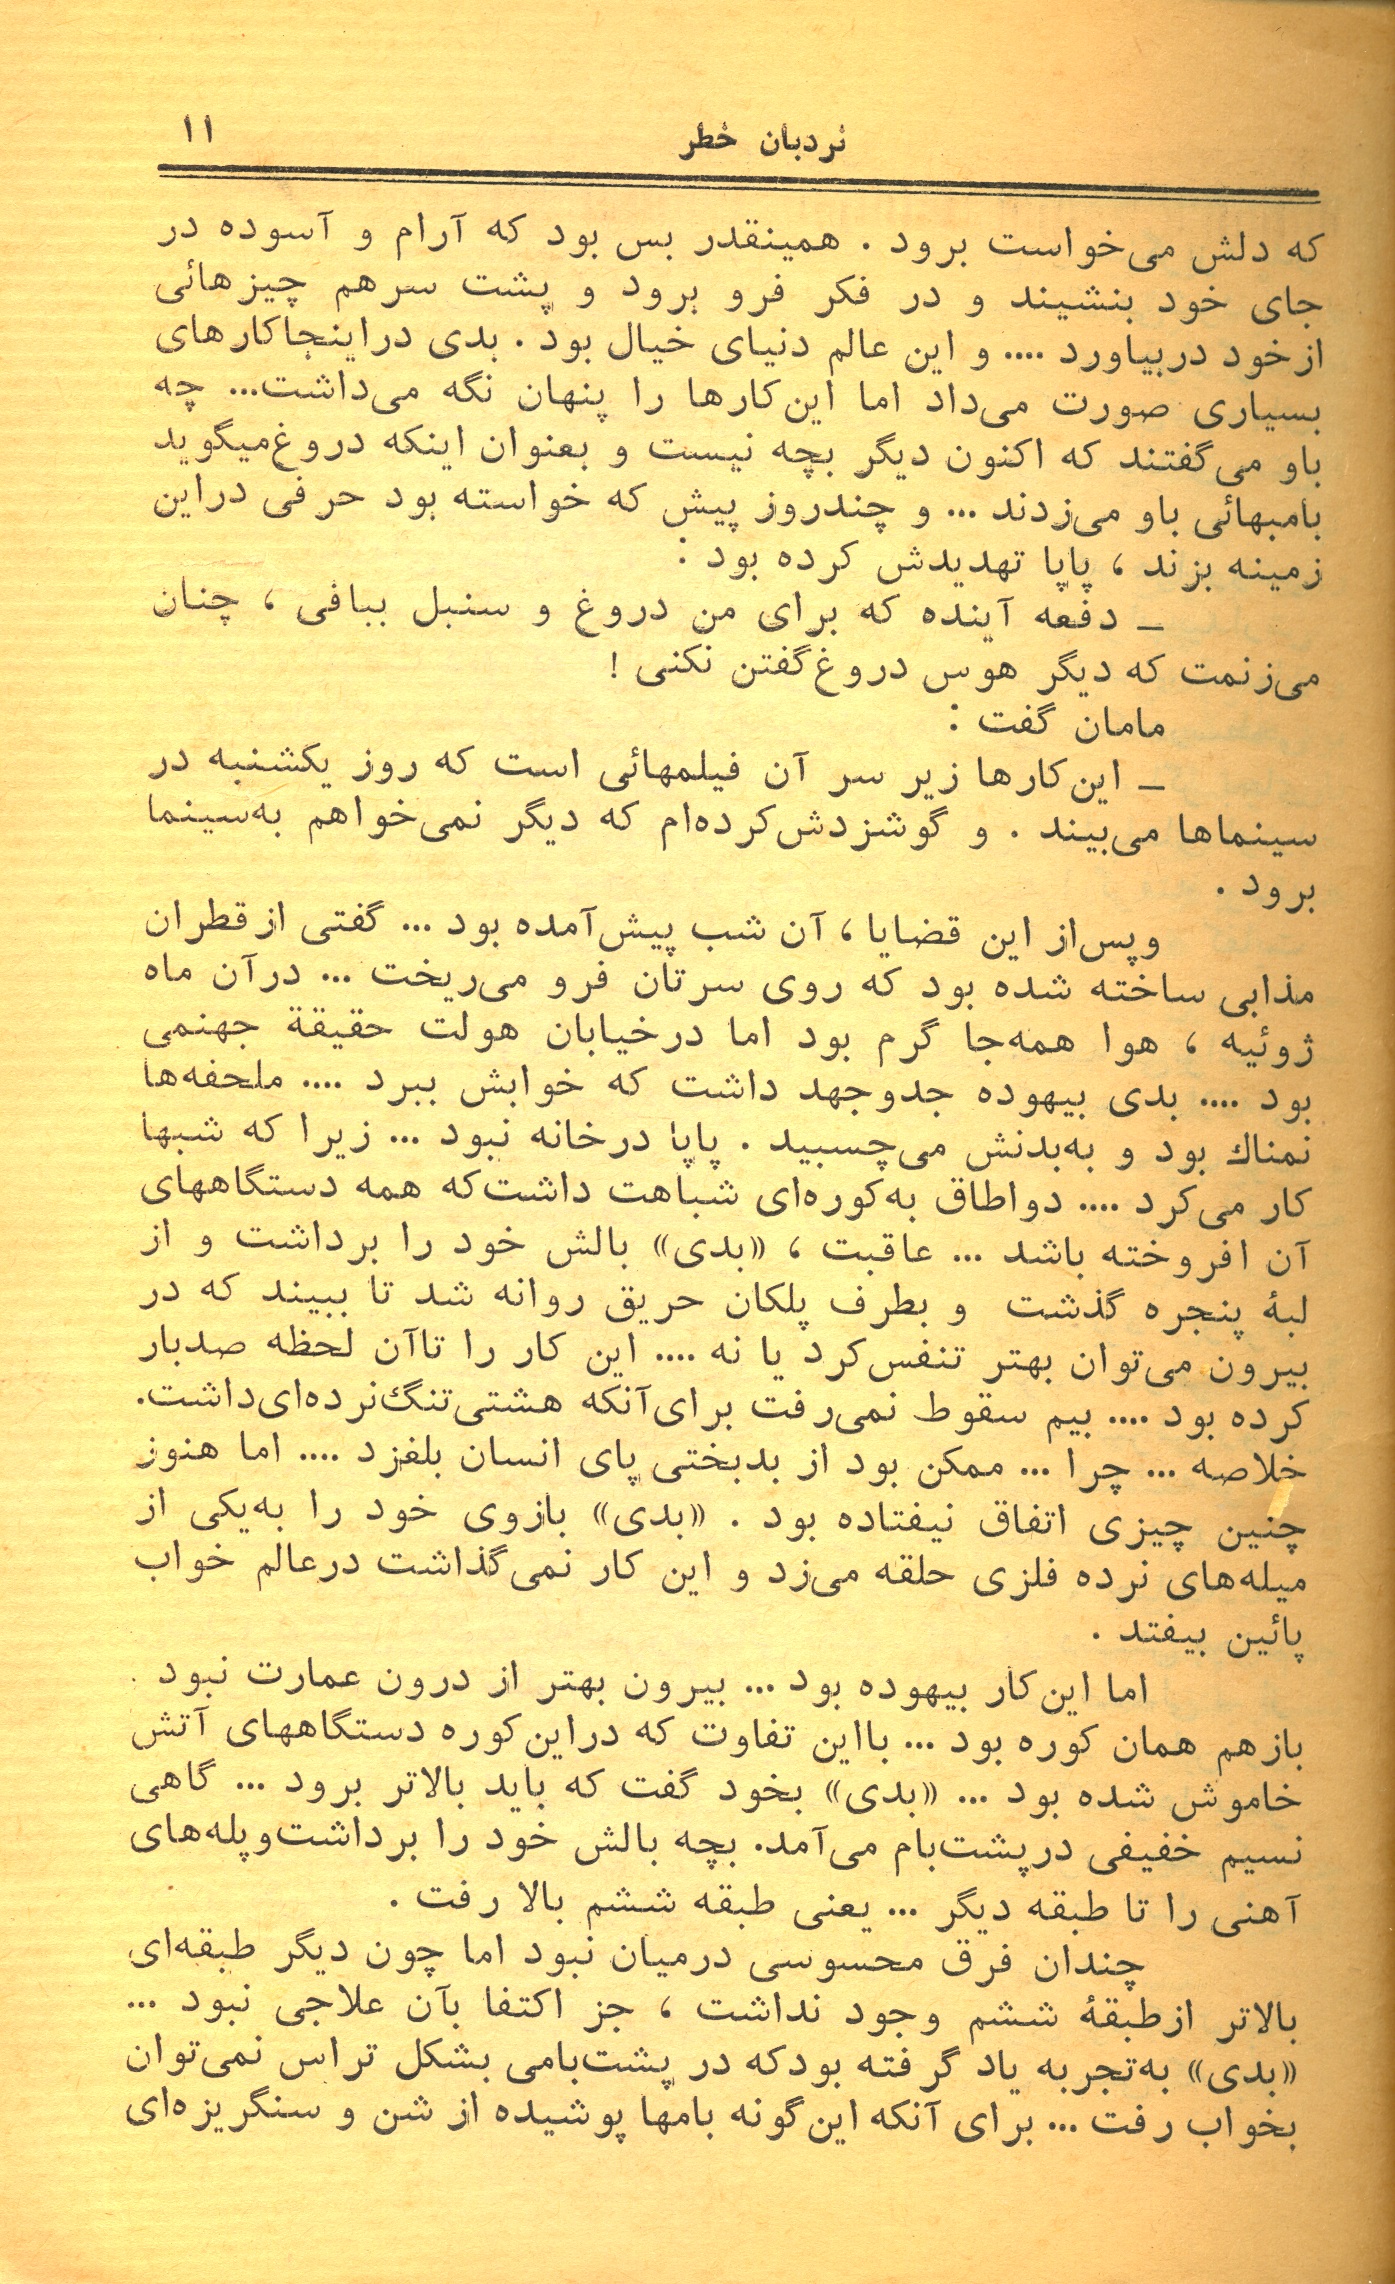 نردبان خطر
۱۱
که دلش می‌خواست برود . همینقدر بس بود که آرام و آسوده در
جای خود بنشیند و در فکر فرو برود و پشت سرهم چیزهائی
ازخود دربیاورد .... و این عالم دنیای خیال بود . بدی دراینجاکارهای
بسیاری صورت می‌داد اما این‌کارها را پنهان نگه می‌داشت... چه
باو می‌گفتند که اکنون دیگر بچه نیست و بعنوان اینکه دروغ‌میگوید
بامبهائی باو می‌زدند ... و چندروز پیش که خواسته بود حرفی دراین
زمینه بزند ، پاپا تهدیدش کرده بود :
ـ دفعه آینده که برای من دروغ و سنبل ببافی ، چنان
می‌زنمت که دیگر هوس دروغ‌گفتن نکنی !
مامان گفت :
ـ این‌کارها زیر سر آن فیلمهائی است که روز یکشنبه در
سینماها می‌بیند . و گوشزدش‌کرده‌ام که دیگر نمی‌خواهم به‌سینما
برود .
وپس‌از این قضایا ، آن شب پیش‌آمده بود ... گفتی ازقطران
مذابی ساخته شده بود که روی سرتان فرو می‌ریخت ... درآن ماه
ژوئیه ، هوا همه‌جا گرم بود اما درخیابان هولت حقیقة جهنمی
بود .... بدی بیهوده جدوجهد داشت که خوابش ببرد .... ملحفه‌ها
نمناك بود و به‌بدنش می‌چسبید . پاپا درخانه نبود ... زیرا که شبها
کار می‌کرد .... دواطاق به‌کوره‌ای شباهت داشت‌که همه دستگاههای
آن افروخته باشد ... عاقبت ، «بدی» بالش خود را برداشت و از
لبهٔ پنجره گذشت و بطرف پلکان حریق روانه شد تا ببیند که در
بیرون می‌توان بهتر تنفس‌کرد یا نه .... این کار را تاآن لحظه صدبار
کرده بود .... بیم سقوط نمی‌رفت برای‌آنکه هشتی‌تنگ‌نرده‌ای‌داشت.
خلاصه ... چرا ... ممکن بود از بدبختی پای انسان بلغزد .... اما هنوز
چنین چیزی اتفاق نیفتاده بود . «بدی» بازوی خود را به‌یکی از
میله‌های نرده فلزی حلقه می‌زد و این کار نمی‌گذاشت درعالم خواب
پائین بیفتد .
اما این‌کار بیهوده بود ... بیرون بهتر از درون عمارت نبود .
بازهم همان کوره بود ... بااین تفاوت که دراین‌کوره دستگاههای آتش
خاموش شده بود ... «بدی» بخود گفت که باید بالاتر برود ... گاهی
نسیم خفیفی درپشت‌بام می‌آمد. بچه بالش خود را برداشت‌وپله‌های
آهنی را تا طبقه دیگر ... یعنی طبقه ششم بالا رفت .
چندان فرق محسوسی درمیان نبود اما چون دیگر طبقه‌ای
بالاتر ازطبقهٔ ششم وجود نداشت ، جز اکتفا بآن علاجی نبود ...
«بدی» به‌تجربه یاد گرفته بودکه در پشت‌بامی بشکل تراس نمی‌توان
بخواب رفت ... برای آنکه این‌گونه بامها پوشیده از شن و سنگریزه‌ای